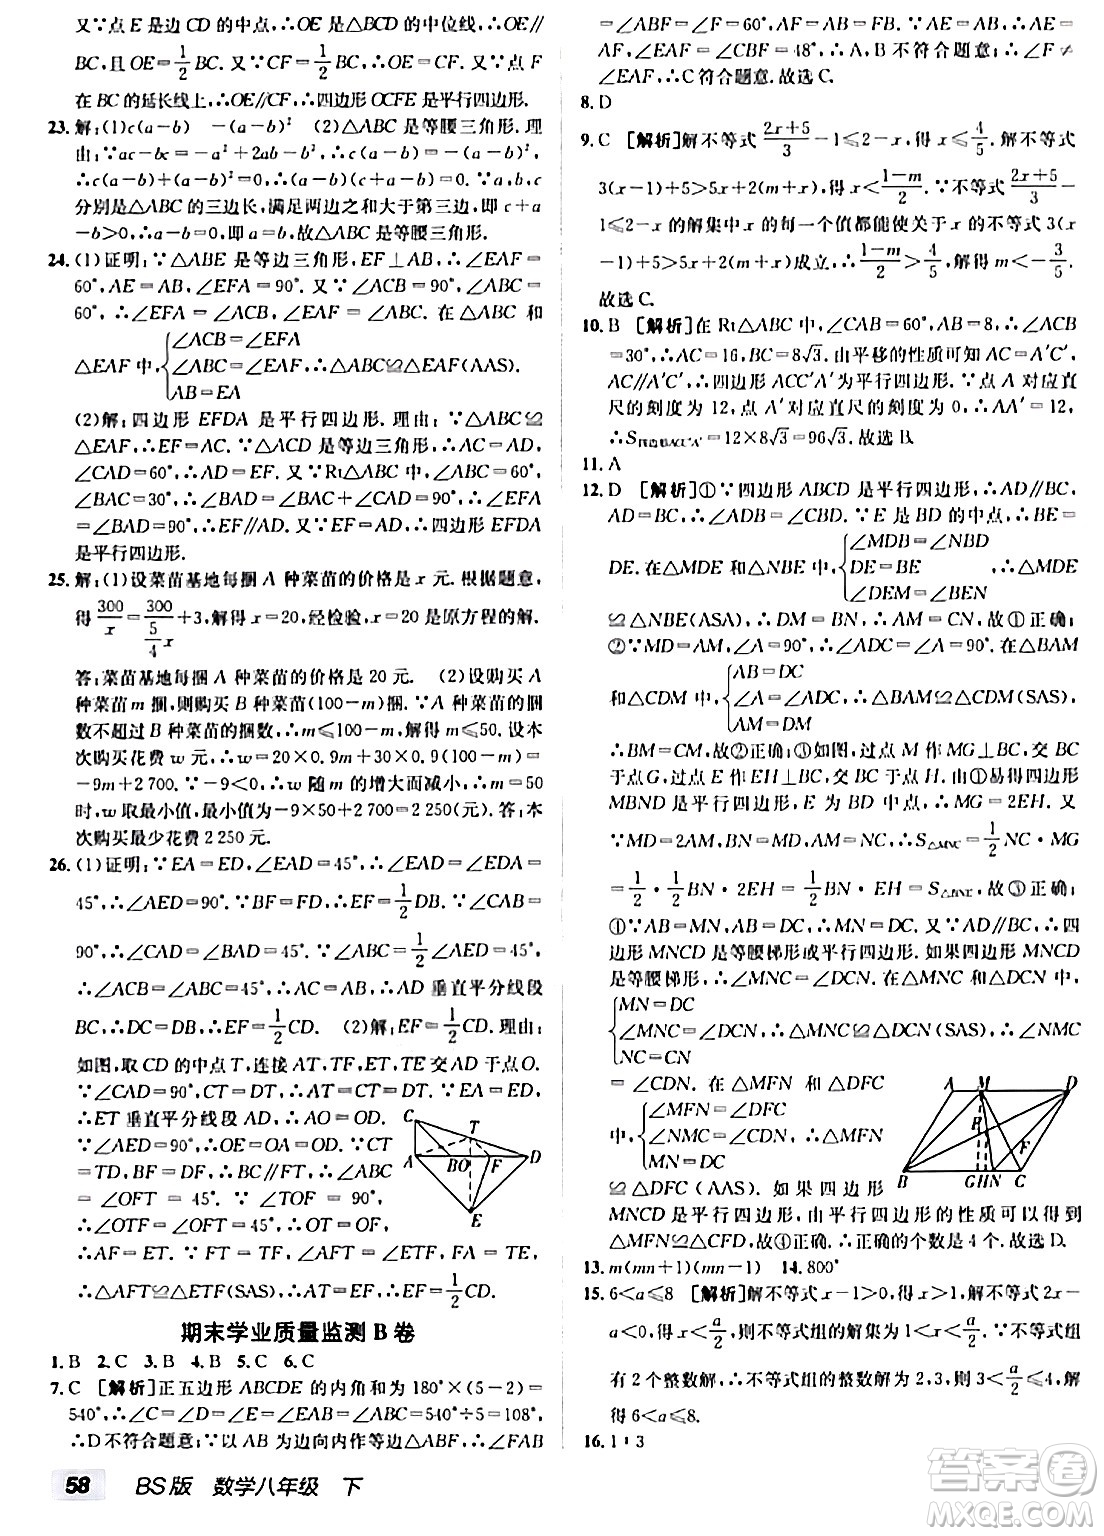 又∵点E是边CD的中点,∴OE是△BCD的中位线,∴OE//
BC,且OE=1/2BC.又∵CF=1/2BC,∴OE=CF.又∵点F
在BC的延长线上,∴OE//CF,∴四边形OCFE是平行四边形.
23.解:(1)c(a-b) -(a-b)² (2)△ABC是等腰三角形.理
由:∵ac-bc=-a²+2ab-b²,∴c(a-b)=-(a-b)²,
∴c(a-b)+(a-b)²=0,∴(a-b)(c+a-b)=0.∵a,b,c
分别是△ABC的三边长,满足两边之和大于第三边,即c+a
-b>0,∴a-b=0,即a=b,故△ABC是等腰三角形.
24.(1)证明:∵△ABE是等边三角形,EF⊥AB,∴∠EAF=
60°,AE=AB,∠EFA=90°.又∵∠ACB=90°,∠ABC=
60°,∴∠EFA=∠ACB,∠EAF=∠ABC.在△ABC和
△EAF中,{∠ACB=∠EFA
∠ABC=∠EAF,∴△ABC≌△EAF(AAS).
AB=EA
(2)解:四边形EFDA是平行四边形.理由:∵△ABC≌
△EAF,∴EF=AC.∵△ACD是等边三角形,∴AC=AD,
∠CAD=60°,∴AD=EF.又∵Rt△ABC中,∠ABC=60°,
∠BAC=30°,∴∠BAD=∠BAC+∠CAD=90°,∴∠EFA
=∠BAD=90°,∴EF//AD.又∵EF=AD,∴四边形EFDA
是平行四边形.
25.解:(1)设菜苗基地每捆A种菜苗的价格是x元.根据题意,
得300/x=300/(5/4x)+3,解得x=20,经检验,x=20是原方程的解.
答:菜苗基地每捆A种菜苗的价格是20元. (2)设购买A
种菜苗m捆,则购买B种菜苗(100-m)捆.∵A种菜苗的捆
数不超过B种菜苗的捆数,∴m≤100-m,解得m≤50.设本
次购买花费w元,∴w=20×0.9m+30×0.9(100-m)=
-9m+2 700.∵-9<0,∴w随m的增大而减小,∴m=50
时,w取最小值,最小值为-9×50+2 700=2 250.答:本
次购买最少花费2 250元.
26.(1)证明:∵EA=ED,∠EAD=45°,∴∠EAD=∠EDA=
45°,∴∠AED=90°.又∵BF=FD,∴EF=1/2DB.∵∠CAB=
90°,∴∠CAD=∠BAD=45°.∵∠ABC=1/2∠AED=45°,
∴∠ACB=∠ABC=45°,∴AC=AB,∴AD垂直平分线段
BC,∴DC=DB,∴EF=1/2CD. (2)解:EF=1/2CD.理由:
如图,取CD的中点T,连接AT,TF,ET,TE交AD于点O.
∵∠CAD=90°,CT=DT,∴AT=CT=DT.∵EA=ED,
∴ET垂直平分线段AD,∴AO=OD.
∵∠AED=90°,∴OE=OA=OD.∵CT
=TD,BF=DF,∴BC//FT,∴∠ABC
=∠OFT=45°.∵∠TOF=90°,
∴∠OTF=∠OFT=45°,∴OT=OF,
∴AF=ET.∵FT=TF,∠AFT=∠ETF,FA=TE,
∴△AFT≌△ETF(SAS),∴AT=EF,∴EF=1/2CD.
C
T
A
BO
F
D
E
期末学业质量监测B卷
1.B 2.C 3.B 4.B 5.C 6.C
7.C [解析]正五边形ABCDE的内角和为180°×(5-2)=
540°,∴∠C=∠D=∠E=∠EAB=∠ABC=540°÷5=108°,
∴D不符合题意;∵以AB为边向内作等边△ABF,∴∠FAB
58 BS版 数学八年级 下
=∠ABF=∠F=60°,AF=AB=FB.∵AE=AB,∴AE=
AF,∠EAF=∠EAB-∠FAB=48°,∴A,B不符合题意;∴∠F≠
∠EAF,∴C符合题意.故选C.
8.D
9.C [解析]解不等式(2x+5)/3-1≤2-x,得x≤4/5.解不等式
3(x-1)+5>5x+2(m+x),得x<(1-m)/2.∵不等式(2x+5)/3-
1≤2-x的解集中x的每一个值都能使关于x的不等式3(x
-1)+5>5x+2(m+x)成立,∴(1-m)/2>4/5,解得m<-3/5.
故选C.
10.B [解析]在Rt△ABC中,∠CAB=60°,AB=8,∴∠ACB
=30°,∴AC=16,BC=8√3.由平移的性质可知AC=A'C',
AC//A'C',∴四边形ACC'A'为平行四边形.∵点A对应直
尺的刻度为12,点A'对应直尺的刻度为0,∴AA'=12,
∴S四边形ACC'A'=12×8√3=96√3.故选B.
11.A
12.D [解析]①∵四边形ABCD是平行四边形,∴AD//BC,
AD=BC,∴∠ADB=∠CBD.∵E是BD的中点,∴BE=
DE.在△MDE和△NBE中,{∠MDB=∠NBD
DE=BE,∴△MDE
∠DEM=∠BEN
≌△NBE(ASA),∴DM=BN,∴AM=CN,故①正确;
②∵MD=AM,∠A=90°,∴∠ADC=∠A=90°.在△BAM
和△CDM中,{AB=DC
∠A=∠ADC,∴△BAM≌△CDM(SAS),
AM=DM
∴BM=CM,故②正确;③如图,过点M作MG⊥BC,交BC
于点G,过点E作EH⊥BC,交BC于点H.易得四边形
MBND是平行四边形,E为BD中点,∴MG=2EH.又
∵MD=2AM,BN=MD,AM=NC,∴S△MNC=1/2NC·MG
=1/2·1/2BN·2EH=1/2BN·EH=S△BNE,故③正确;
④∵AB=MN,AB=DC,∴MN=DC.又∵AD//BC,∴四
边形MNCD是等腰梯形或平行四边形.如果四边形MNCD
是等腰梯形,∴∠MNC=∠DCN.在△MNC和△DCN中,
{MN=DC
∠MNC=∠DCN,∴△MNC≌△DCN(SAS),∴∠NMC
NC=CN
=∠CDN.在△MFN和△DFC
中,{∠MFN=∠DFC
∠NMC=∠CDN,∴△MFN
MN=DC
≌△DFC(AAS).如果四边形
MNCD是平行四边形,由平行四边形的性质可以得到
△MFN≌△CFD,故④正确.∴正确的个数是4个.故选D.
A
M
D
E
F
B
GHN
C
13.m(mn+1)(mn-1) 14.800°
15.6<a≤8 [解析]解不等式x-1>0,得x>1.解不等式2x-
a<0,得x<a/2,则不等式组的解集为1<x<a/2.∵不等式组
有2个整数解,∴不等式组的整数解为2,3,则3<a/2≤4,解
得6<a≤8.
16.1∶3
答案圈
MXQE.COM